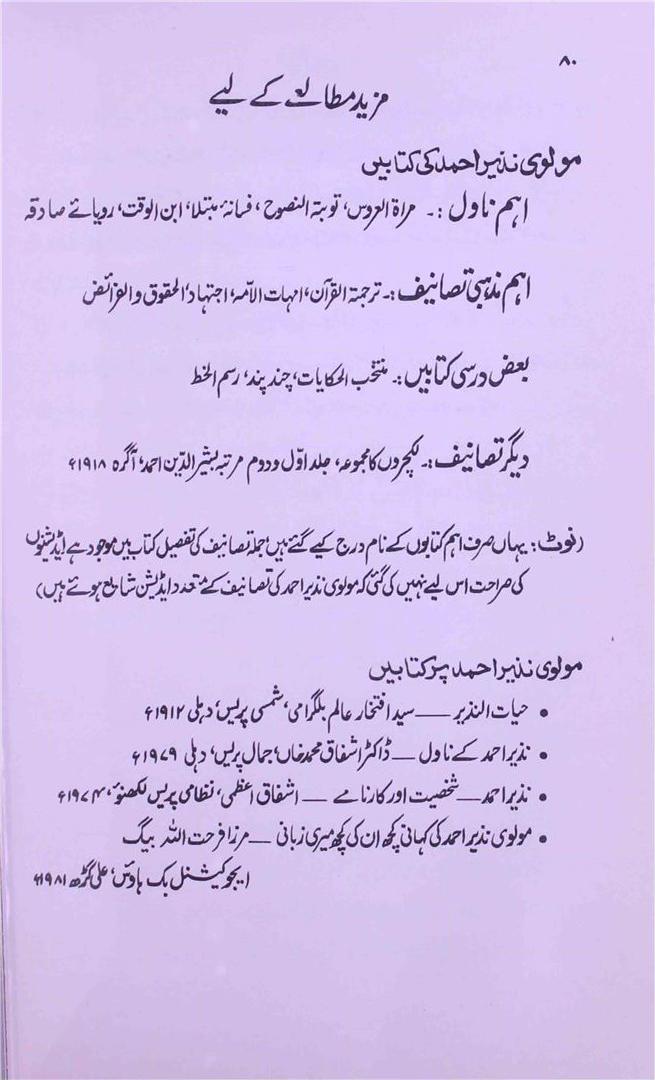 ۸۰
مزید مطالعے کے لیے
مولوی نذیر احمد کی کتابیں
اہم ناول :۔ مراۃ العروس، توبتہ النصوح، فسانۂ مبتلا، ابن الوقت، رویائے صادقہ
اہم مذہبی تصانیف :۔ ترجمۃ القرآن، امہات الامّہ، اجتہاد، الحقوق والفرائض
بعض درسی کتابیں :۔ منتخب الحکایات، چند پند، رسم الخط
دیگر تصانیف :۔ لکچروں کا مجموعہ، جلد اوّل و دوم مرتبہ بشیر الدّین احمد، آگرہ ۱۹۱۸ء
(نوٹ: یہاں صرف اہم کتابوں کے نام درج کیے گئے ہیں، جملہ تصانیف کی تفصیل کتاب میں موجود ہے ایڈیشنوں
کی صراحت اس لیے نہیں کی گئی کہ مولوی نذیر احمد کی تصانیف کے متعدد ایڈیشن شایع ہوئے ہیں)
مولوی نذیر احمد پر کتابیں
• حیات النذیر — سید افتخار عالم بلگرامی، شمسی پریس، دہلی ۱۹۱۲ء
• نذیر احمد کے ناول — ڈاکٹر اشفاق محمد خاں، جمال پریس، دہلی ۱۹۷۹ء
• نذیر احمد — شخصیت اور کارنامے — اشفاق اعظمی، نظامی پریس لکھنؤ، ۱۹۷۴ء
• مولوی نذیر احمد کی کہانی کچھ ان کی کچھ میری زبانی — مرزا فرحت اللہ بیگ
ایجوکیشنل بک ہاؤس، علی گڑھ ۱۹۸۱ء